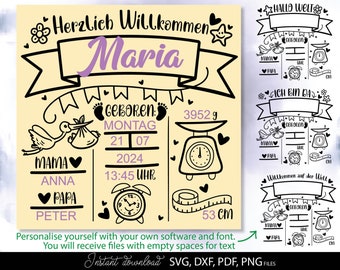 Herzlich Willkommen
Maria
GEBOREN:
MONTAG
21 07
2024
13:45 UHR
3952 g
MAMA
ANNA
PAPA
PETER
53 CM
HALLO WELT
GEBOREN
UHR
MAMA
PAPA
CM
ICH BIN DA
GEBOREN
UHR
MAMA
PAPA
CM
Willkommen auf der Welt
GEBOREN
UHR
MAMA
PAPA
CM
Personalise yourself with your own software and font.
You will receive files with empty spaces for text
Instant download
SVG, DXF, PDF, PNG FILES